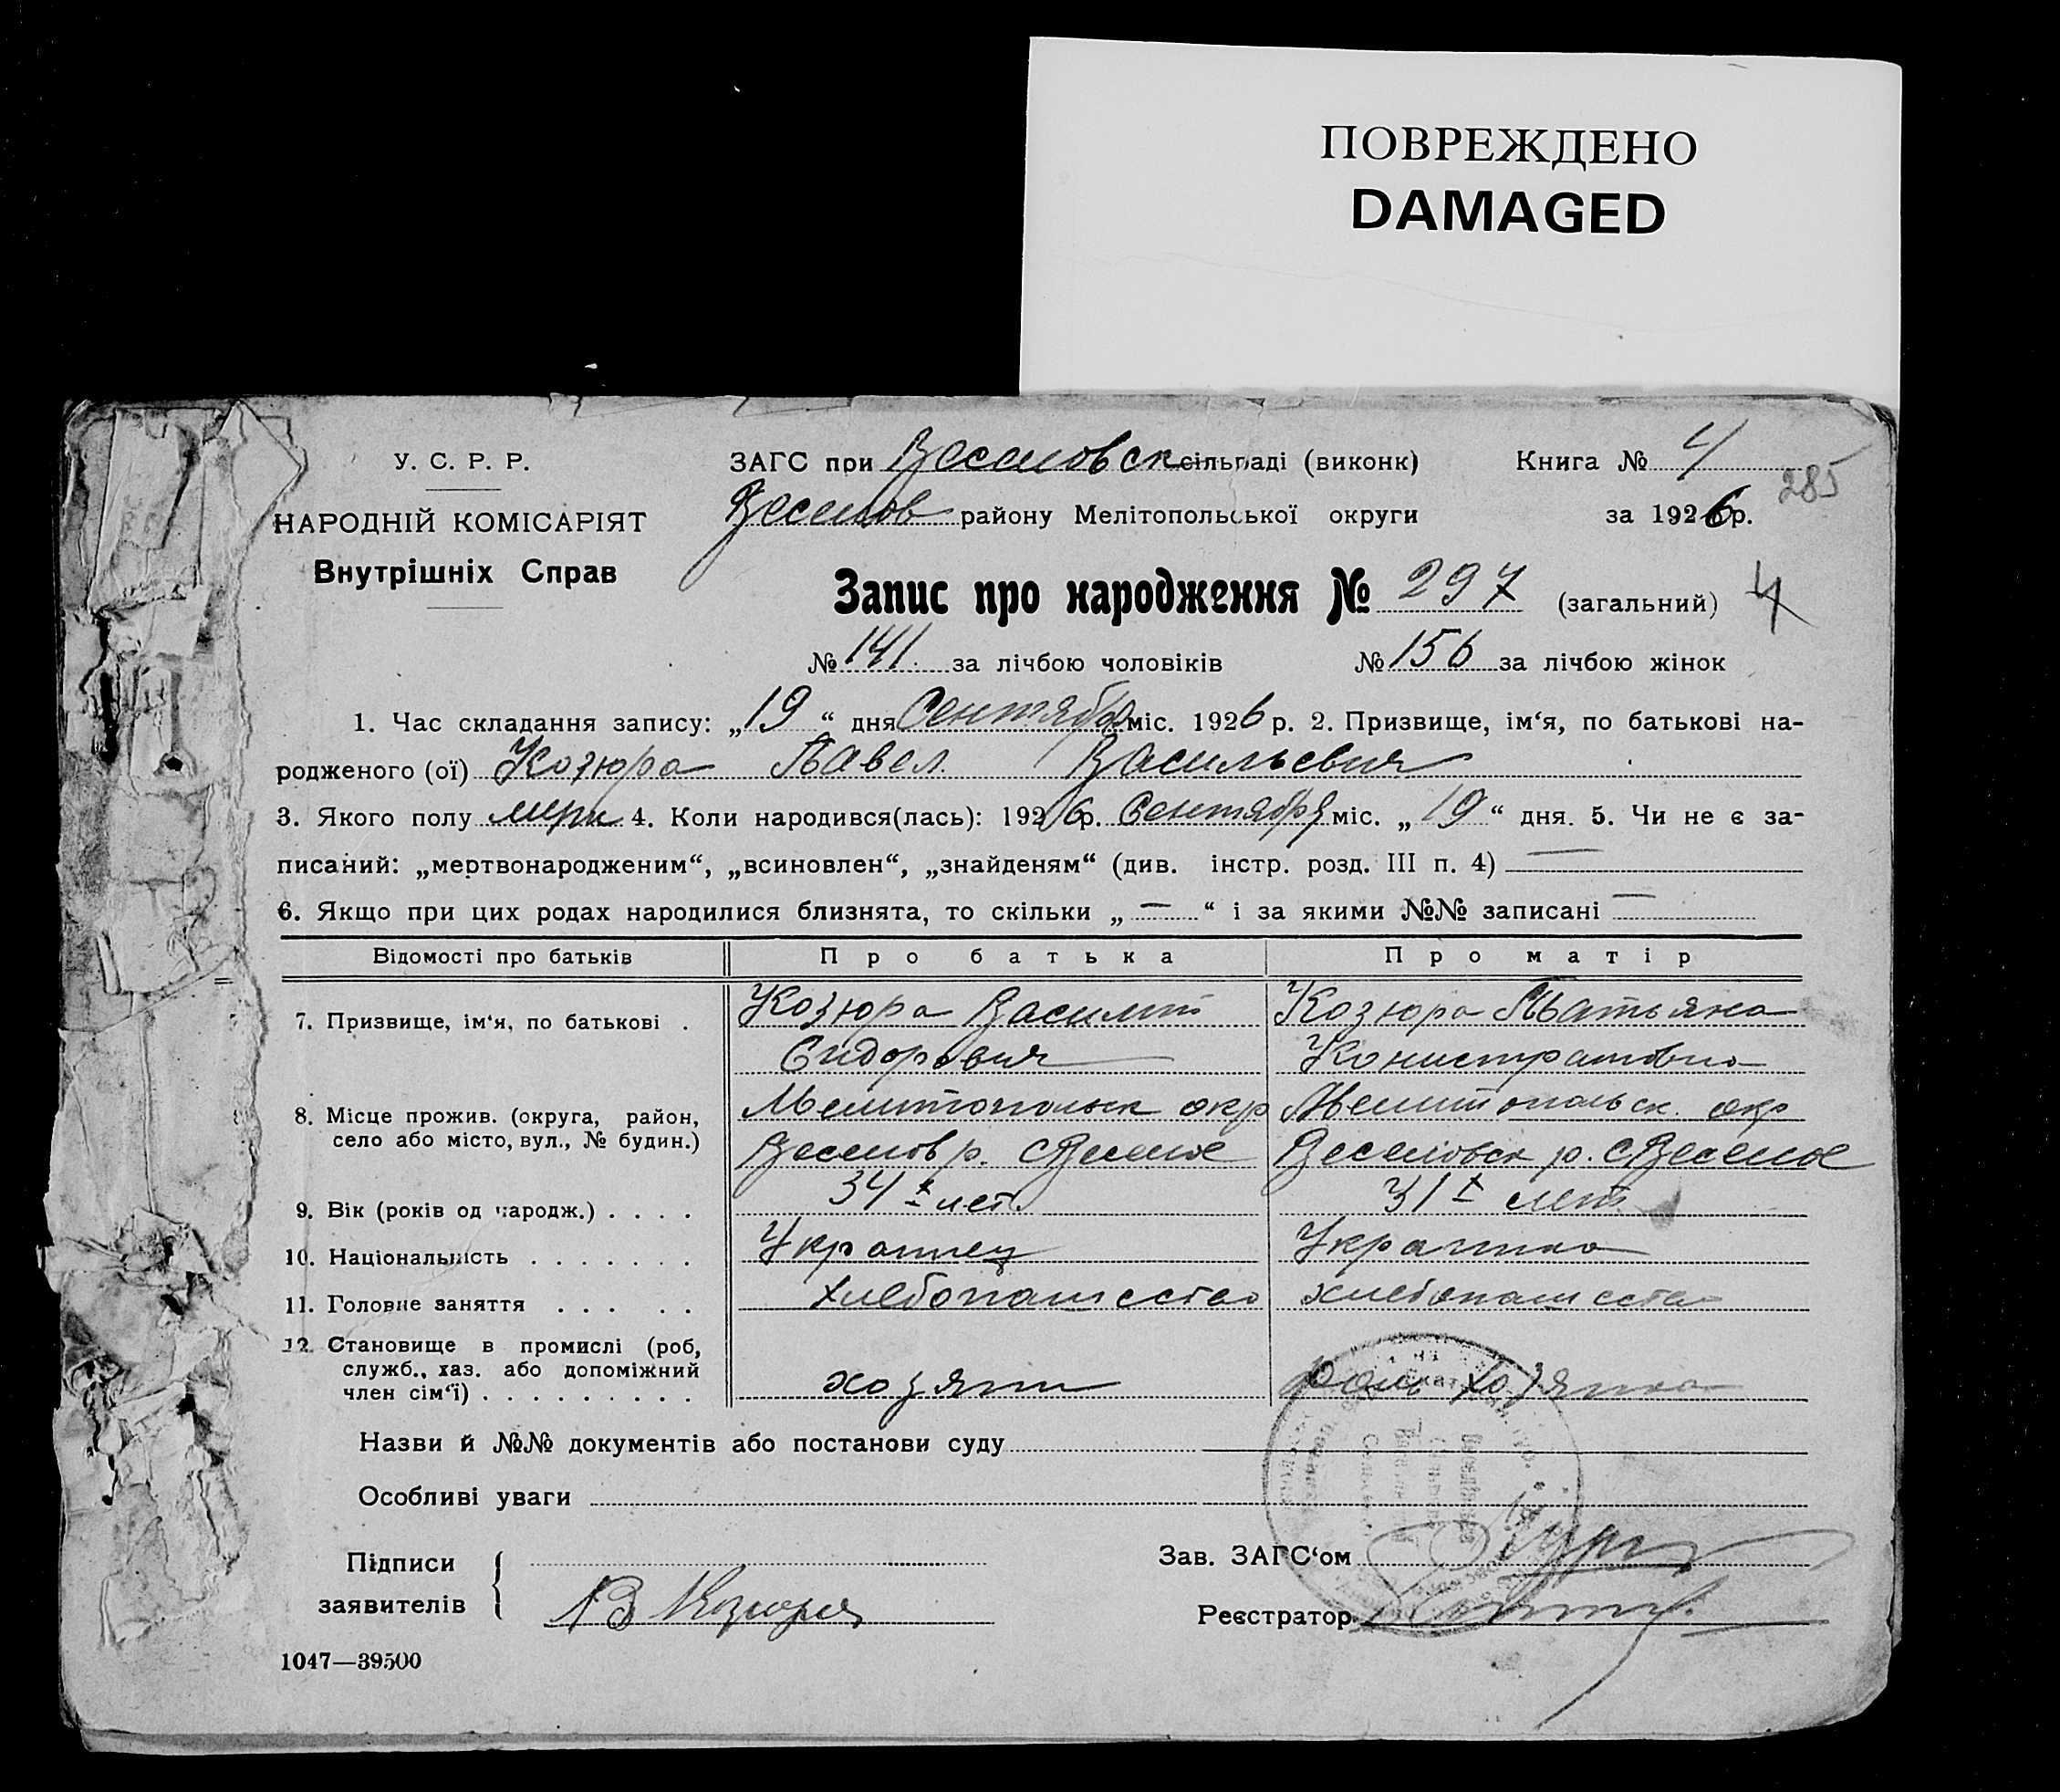 ПОВРЕЖДЕНО
DAMAGED
У. С. Р. Р.
НАРОДНІЙ КОМІСАРІЯТ
Внутрішніх Справ
ЗАГС при Веселовск сільраді (виконк) Книга № 4
285
Веселов району Мелітопольської округи за 1926 р.
Запис про народження № 297 (загальний) 4
№ 141. за лічбою чоловіків № 156 за лічбою жінок
1. Час складання запису: „19“ дня Сентября міс. 1926 р. 2. Призвище, ім‘я, по батькові на-
родженого (ої) Козюра Павел Васильевич
3. Якого полу 4. Коли народився(лась): 1926 р. Сентября міс. „19“ дня. 5. Чи не є за-
писаний: „мертвонародженим“, „всиновлен“, „знайденям“ (див. інстр. розд. III п. 4) —
6. Якщо при цих родах народилися близнята, то скільки „—“ і за якими №№ записані —
Відомості про батьків Про батька Про матір
7. Призвище, ім‘я, по батькові . Козюра Василий Козюра Татьяна
Сидорович Конистратовна
8. Місце прожив. (округа, район, Мелитопольск окр Мелитопольск. окр
село або місто, вул., № будин.) Веселов р. с Веселое Веселовск р. с Веселое
9. Вік (років од народж.) . . . . 34 х лет 31 х лет
10. Національність . . . . . . . Украинец Украинка
11. Головне заняття . . . . . Хлебопашество хлебопашество
12. Становище в промислі (роб,
служб., хаз. або допоміжний
член сім‘ї) . . . . . . . . . хозяин хозяина
Назви й №№ документів або постанови суду
Особливі уваги
Підписи
заявителів { В Козюра
Зав. ЗАГС‘ом
Реєстратор
1047—39500